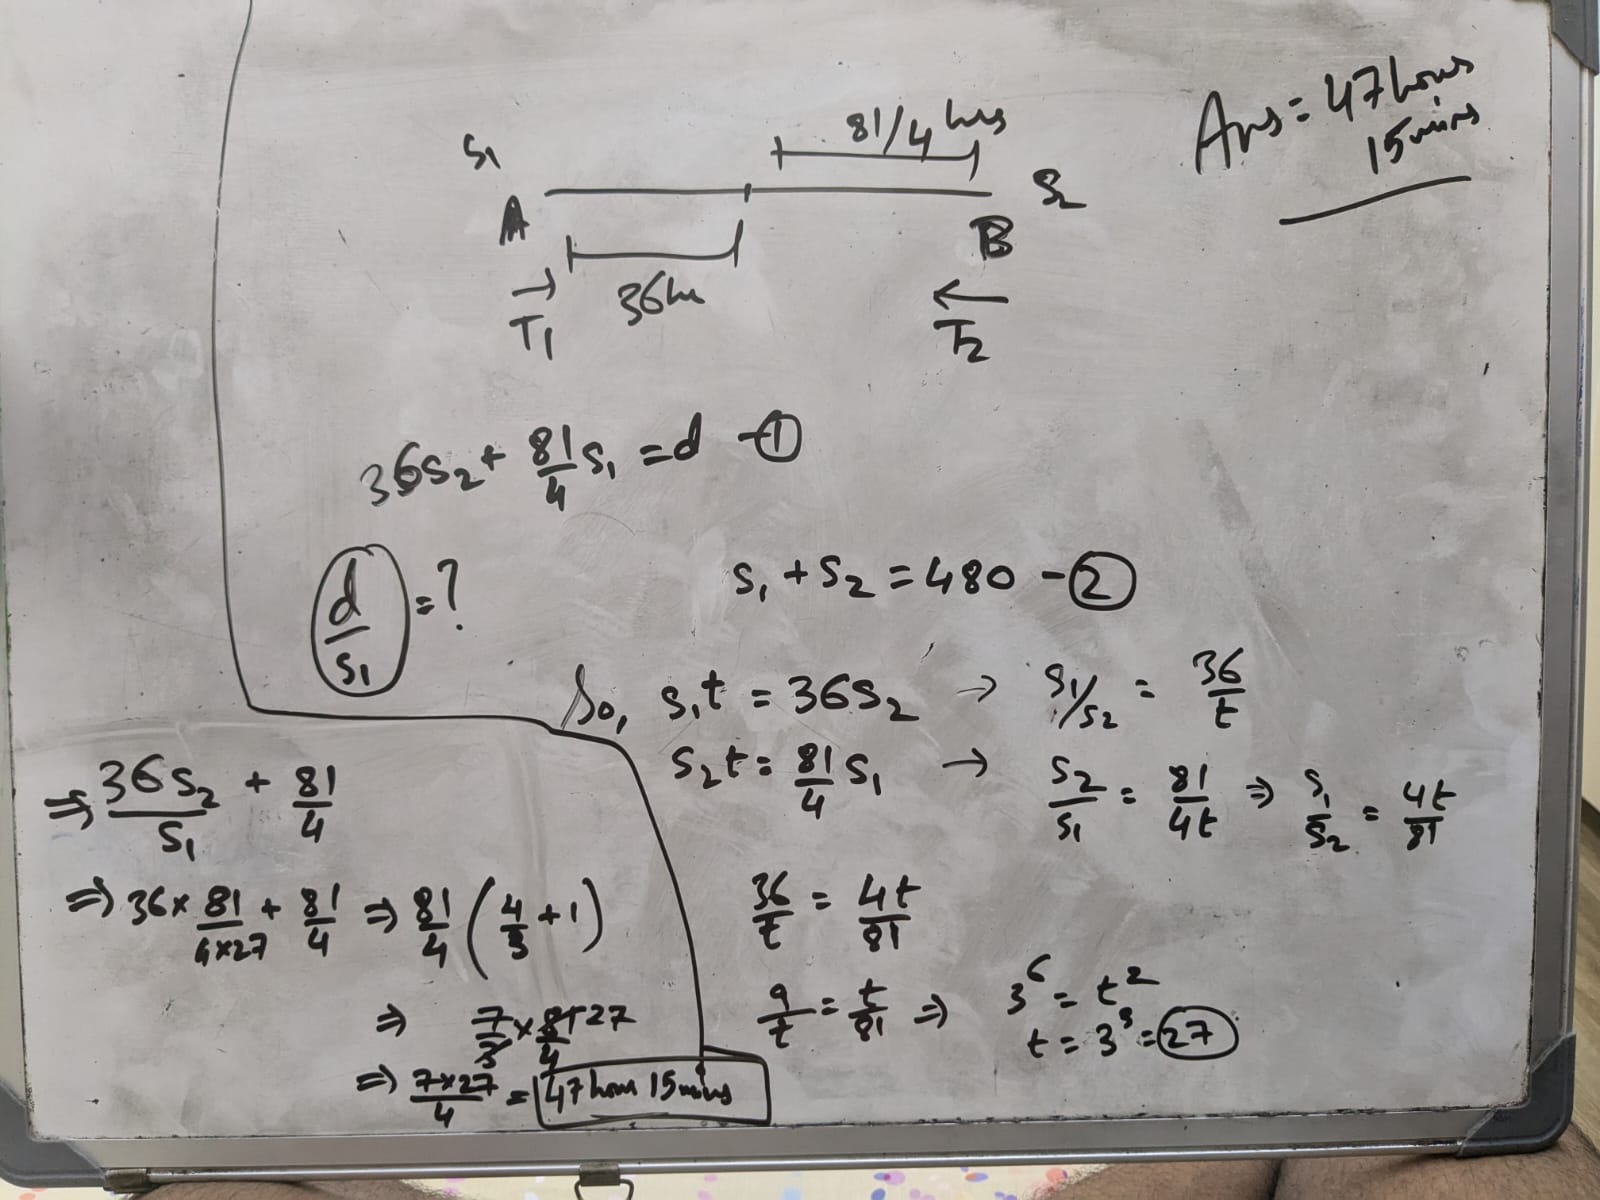 Ans = 47 hours
15 mins
81/4 hrs
S₁
S₂
A
B
36hr
→
T₁
←
T₂
36S₂ + 81/4 S₁ = d - ①
d/S₁ = ?
S₁ + S₂ = 480 - ②
So, S₁t = 36S₂ → S₁/S₂ = 36/t
S₂t = 81/4 S₁ → S₂/S₁ = 81/4t ⇒ S₁/S₂ = 4t/81
36/t = 4t/81
9/t = t/81 ⇒ 3⁶ = t²
t = 3³ = 27
⇒ 36S₂/S₁ + 81/4
⇒ 36 × 81/4×27 + 81/4 ⇒ 81/4 (4/3 + 1)
⇒ 7/3 × 81/4 27
⇒ 7×27/4 = 47 hours 15 mins